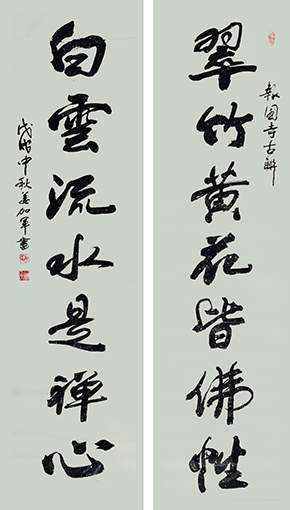 翠竹黄花皆佛性
報国寺古联
白雲流水是禅心
戊戌中秋姜加军書